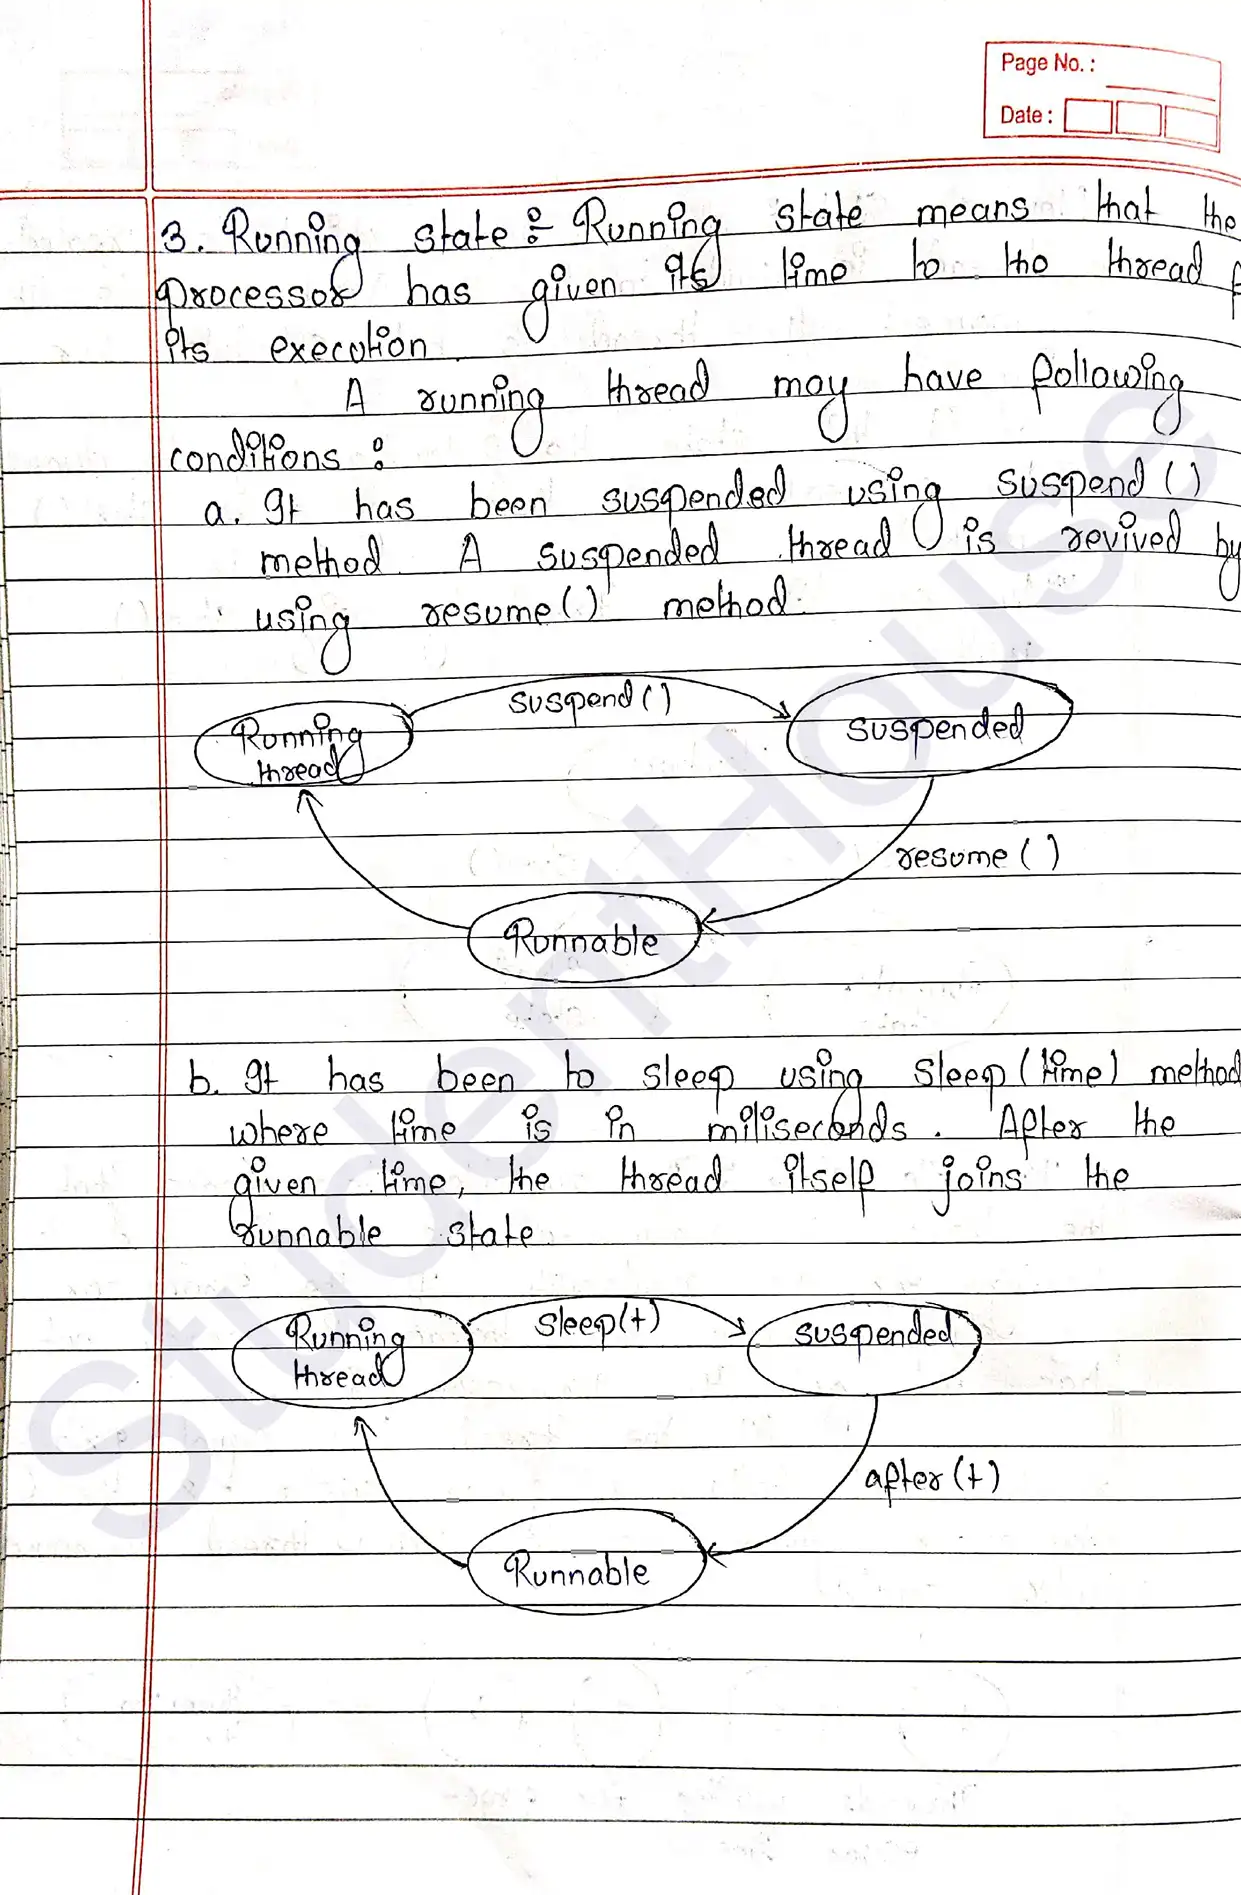 Page No. :
Date :
3. Running state :- Running state means that the
processor has given its time to the thread
its execution.
A running thread may have following
conditions :
a. It has been suspended using suspend ( )
method. A suspended thread is revived by
using resume ( ) method.
suspend ( )
Running
thread
suspended
resume ( )
Runnable
b. It has been to sleep using sleep (time) method
where time is in miliseconds. After the
given time, the thread itself joins the
runnable state.
sleep(t)
Running
thread
suspended
after (t)
Runnable
StudentHouse